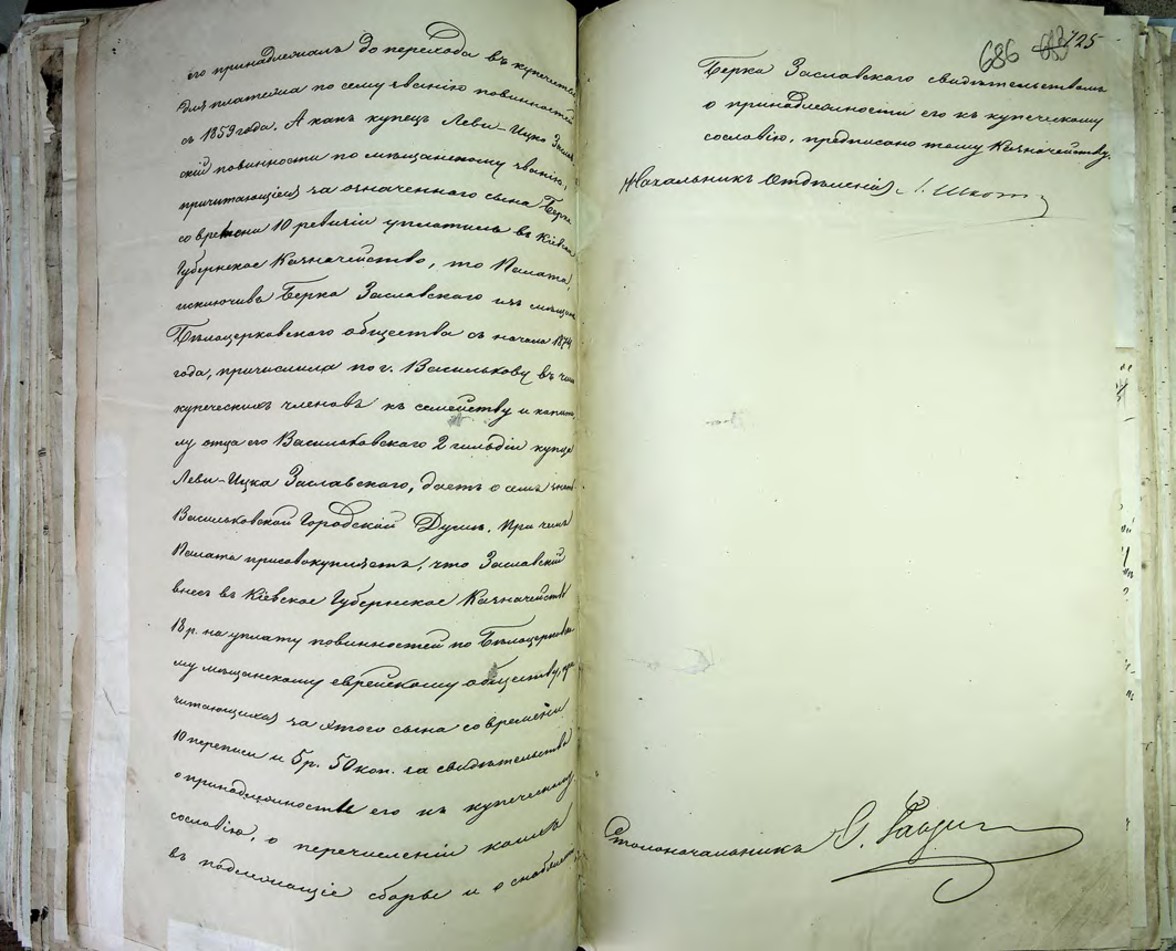 его принадлежалъ до перехода въ купечество
для платежа по сему званію повинностей
съ 1859 года. А какъ купецъ Леви-Ицко Заслав
скій повинности по мѣщанскому званію,
причитающіеся за означеннаго сына Берка
со времени 10 ревизіи уплатилъ въ Кіевское
Губернское Казначейство, то Палата,
исключивъ Берка Заславского изъ мѣщанъ
Бѣлоцерковского общества съ начала 1874
года, причислила по г. Василькову въ число
купеческихъ членовъ къ семейству и капита
лу отца его Васильковского 2 гильдіи купца
Леви-Ицка Заславского, даетъ о семъ знать
Васильковской Городской Думѣ. При чемъ
Палата присовокупляетъ, что Заславскій
внесъ въ Кіевское Губернское Казначейство
18 р. на уплату повинностей по Бѣлоцерковско
му мѣщанскому еврейскому обществу, при
читающихся за этого сына со времени
10 переписи и 5 р. 50 коп. за свидѣтельство
о принадлежности его къ купеческому
сословію, о перечисленіи коихъ
въ подлежащіе сборы и о снабженіи
686 725
Берка Заславского свидѣтельствомъ
о принадлежности его къ купеческому
сословію, предписано тому Казначейству.
Начальникъ Отдѣленія
Столоначальникъ С.